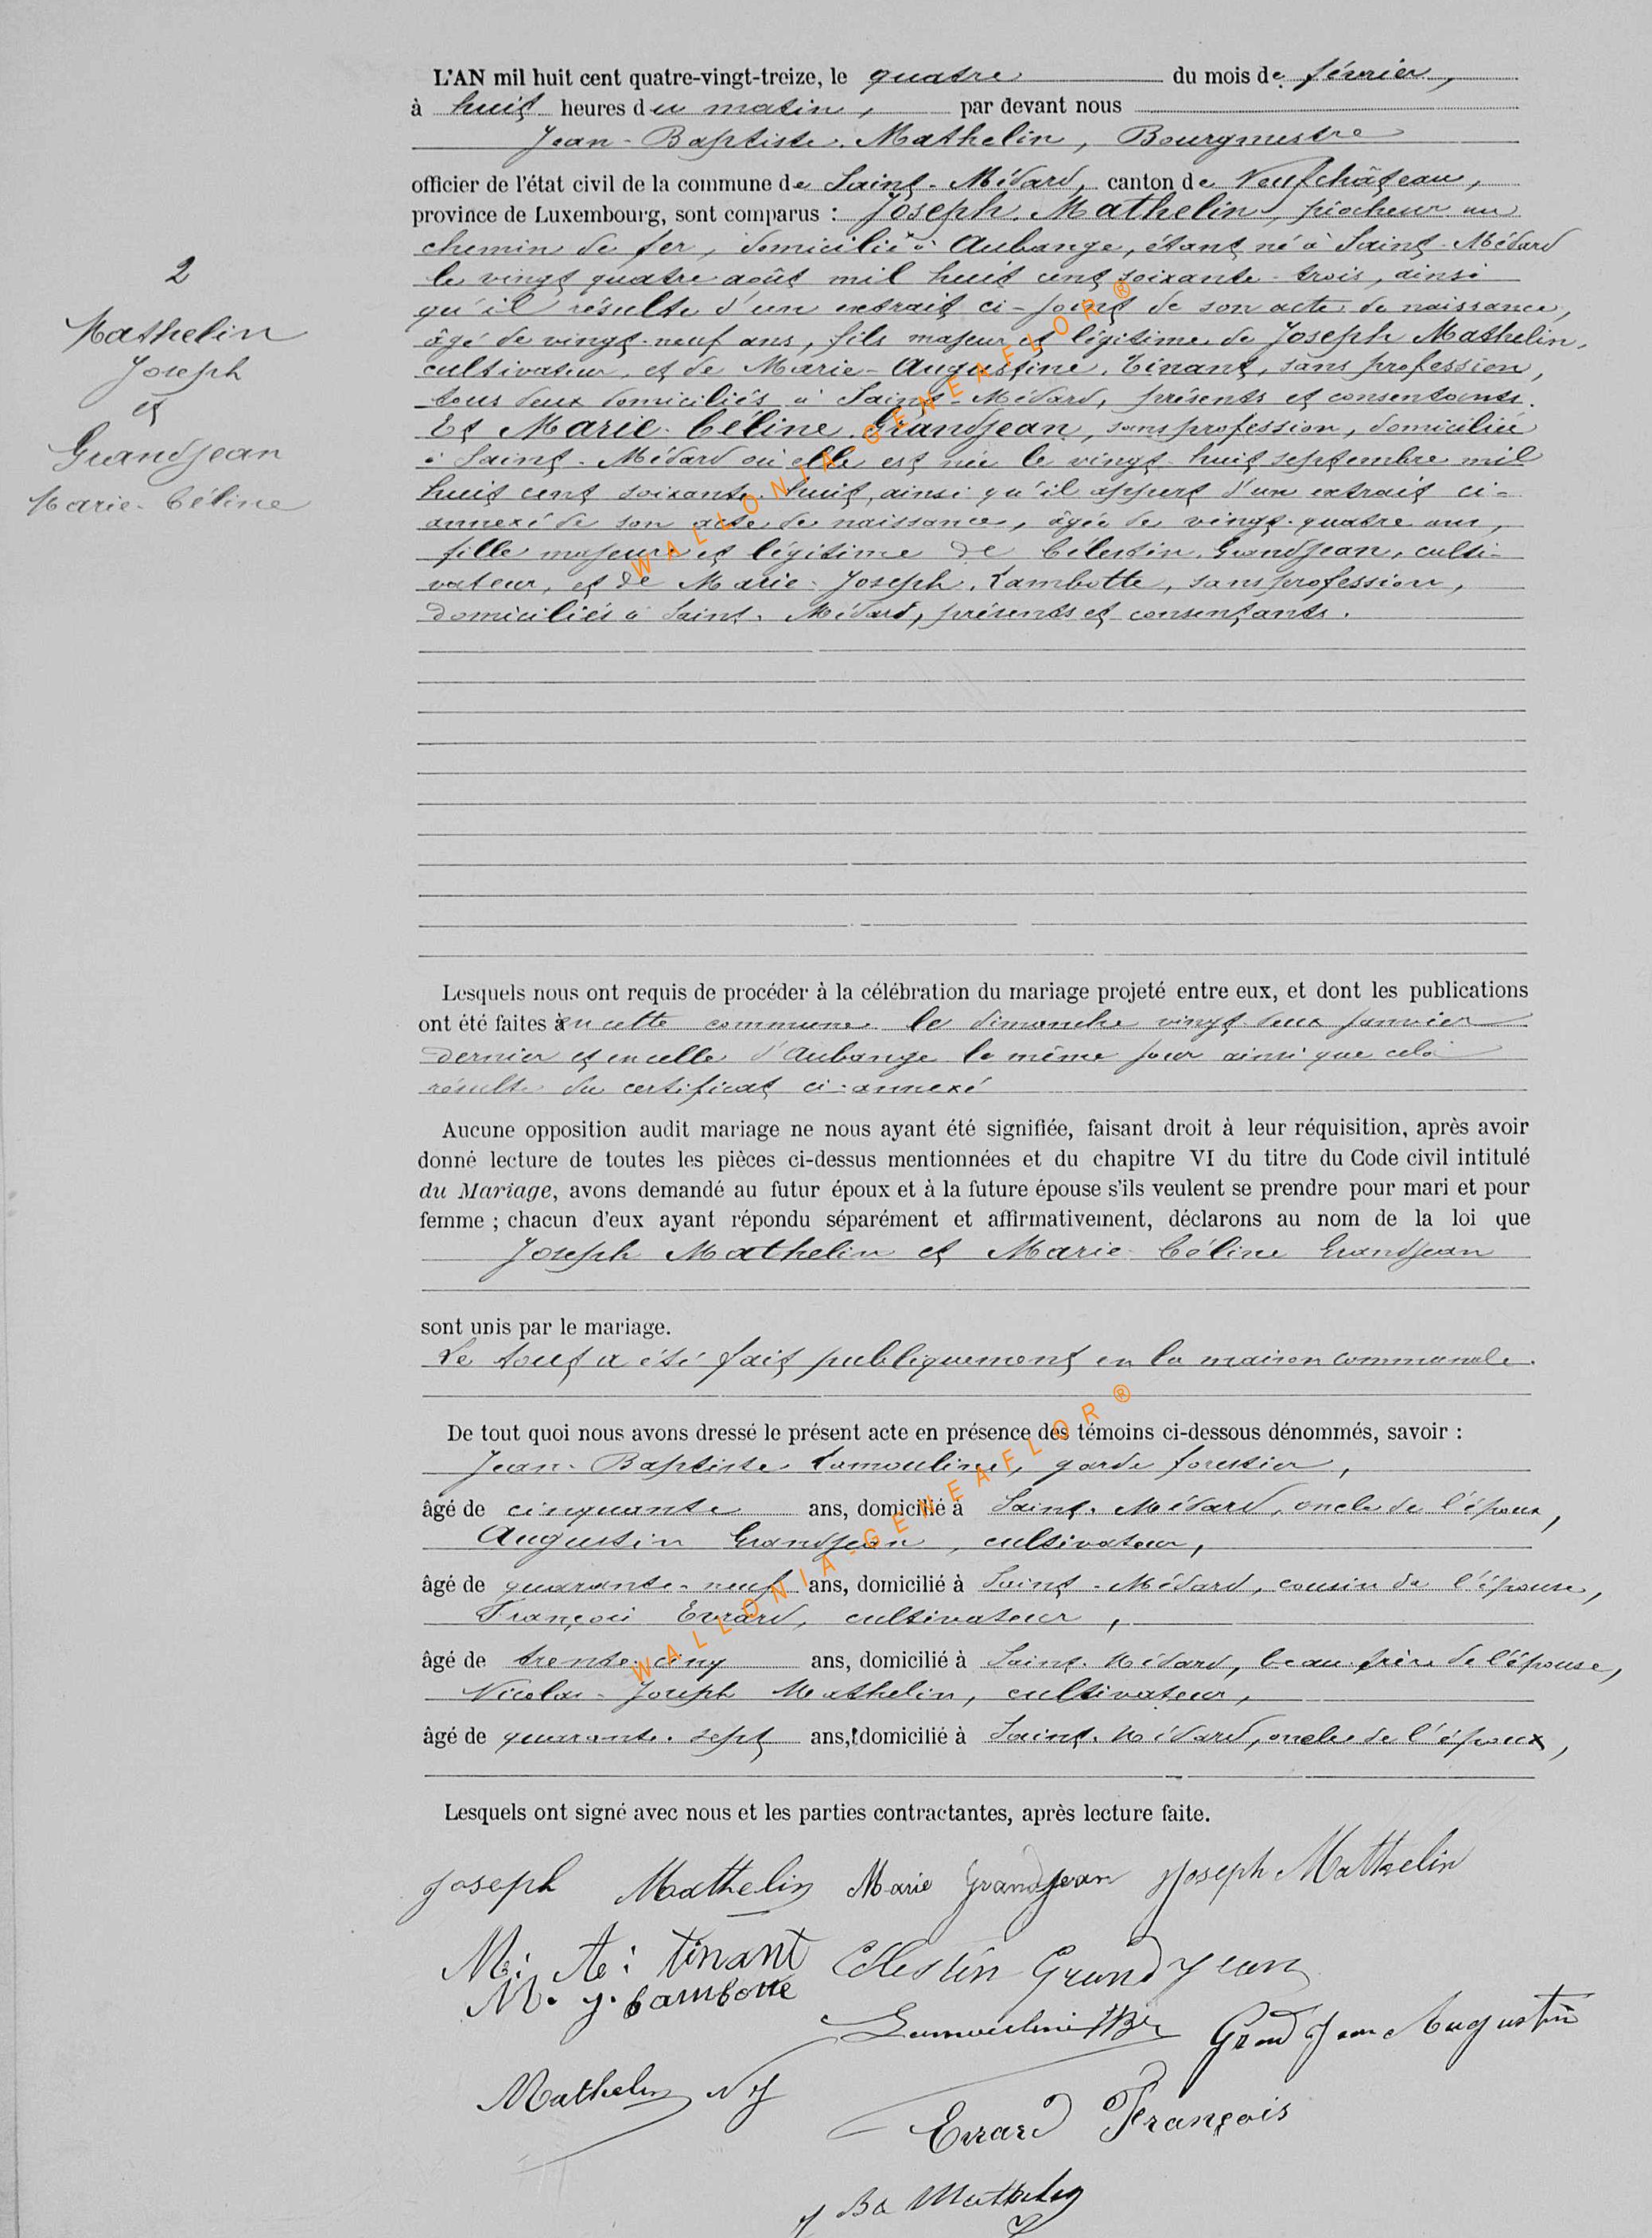 L'AN mil huit cent quatre-vingt-treize, le quatre du mois de février,
à huit heures du matin, par devant nous
Jean-Baptiste Mathelin, Bourgmestre
officier de l'état civil de la commune de Saint-Médard, canton de Neufchâteau,
province de Luxembourg, sont comparus : Joseph Mathelin, piocheur au
chemin de fer, domicilié à Aubange, étant né à Saint-Médard
le vingt quatre août mil huit cent soixante-trois, ainsi
qu'il résulte d'un extrait ci-joint de son acte de naissance,
âgé de vingt-neuf ans, fils majeur et légitime de Joseph Mathelin,
cultivateur, et de Marie-Augustine Tinant, sans profession,
tous deux domiciliés à Saint-Médard, présents et consentants.
Et Marie-Céline Grandjean, sans profession, domiciliée
à Saint-Médard où elle est née le vingt-huit septembre mil
huit cent soixante-huit, ainsi qu'il appert d'un extrait ci-
annexé de son acte de naissance, âgée de vingt-quatre ans,
fille majeure et légitime de Célestin Grandjean, culti-
vateur, et de Marie-Joseph Lambotte, sans profession,
domiciliés à Saint-Médard, présents et consentants.
2
Mathelin
Joseph
et
Grandjean
Marie-Céline
Lesquels nous ont requis de procéder à la célébration du mariage projeté entre eux, et dont les publications
ont été faites en cette commune le dimanche vingt-deux janvier
dernier et en celle d'Aubange le même jour ainsi que cela
résulte du certificat ci-annexé
Aucune opposition audit mariage ne nous ayant été signifiée, faisant droit à leur réquisition, après avoir
donné lecture de toutes les pièces ci-dessus mentionnées et du chapitre VI du titre du Code civil intitulé
du Mariage, avons demandé au futur époux et à la future épouse s'ils veulent se prendre pour mari et pour
femme ; chacun d'eux ayant répondu séparément et affirmativement, déclarons au nom de la loi que
Joseph Mathelin et Marie-Céline Grandjean
sont unis par le mariage.
Le tout a été fait publiquement en la maison communale.
De tout quoi nous avons dressé le présent acte en présence des témoins ci-dessous dénommés, savoir :
Jean-Baptiste Lamouline, garde forestier,
âgé de cinquante ans, domicilié à Saint-Médard, oncle de l'époux,
Augustin Grandjean, cultivateur,
âgé de quarante-neuf ans, domicilié à Saint-Médard, cousin de l'épouse,
François Evrard, cultivateur,
âgé de trente-cinq ans, domicilié à Saint-Médard, beau-frère de l'épouse,
Nicolas-Joseph Mathelin, cultivateur,
âgé de quarante-sept ans, domicilié à Saint-Médard, oncle de l'époux,
Lesquels ont signé avec nous et les parties contractantes, après lecture faite.
Joseph Mathelin Marie Grandjean Joseph Mathelin
M. A. tinant Célestin Grandjean
M. J. Lambotte
Lamouline JBte Grandjean Augustin
Mathelin NJ
Evrard François
J Bte Mathelin
WALLONIA-GENEAFLOR®
WALLONIA-GENEAFLOR®